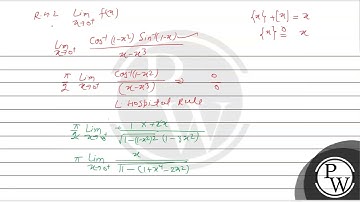 R.H.L Lim x→0⁺ f(x)
{x} + [x] = x
{x} = x
Lim x→0⁺ Cos⁻¹(1-x²) Sin⁻¹(1-x) / x-x³
π/2 Lim x→0⁺ Cos⁻¹(1-x²) / (x-x³) ⇒ 0/0
L Hospital Rule
π/2 Lim x→0⁺ 1 × +2x / √1-(1-x²)² (1-3x²)
π Lim x→0⁺ x / √1-(1+x⁴-2x²)
PW